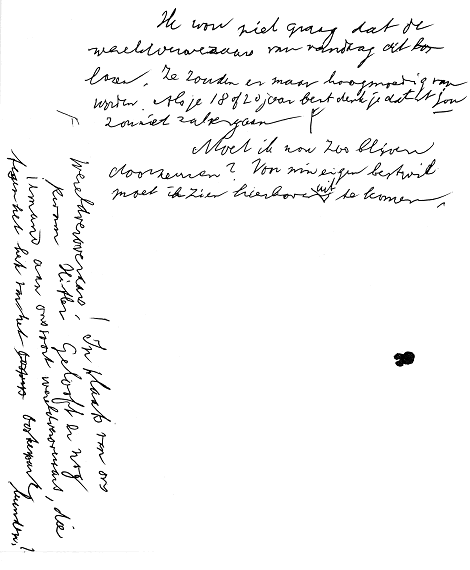 Ik wou niet graag dat de
wereldveroveraars van vandaag dit
lazen. Ze zouden er maar hoogmoedig van
worden. Als je 18 of 20 jaar bent denk je dat het jou
zo niet zal vergaan
Moet ik nou zoo blijven
doorzeuren? Voor mijn eigen bestwil
moet ik zien hier uit te komen.
Wereldveroveraars! In plaats van ons
kwam Hitler. Gelooft er nog
iemand aan ons soort wereldveroveraars, die
tegen het hek van het